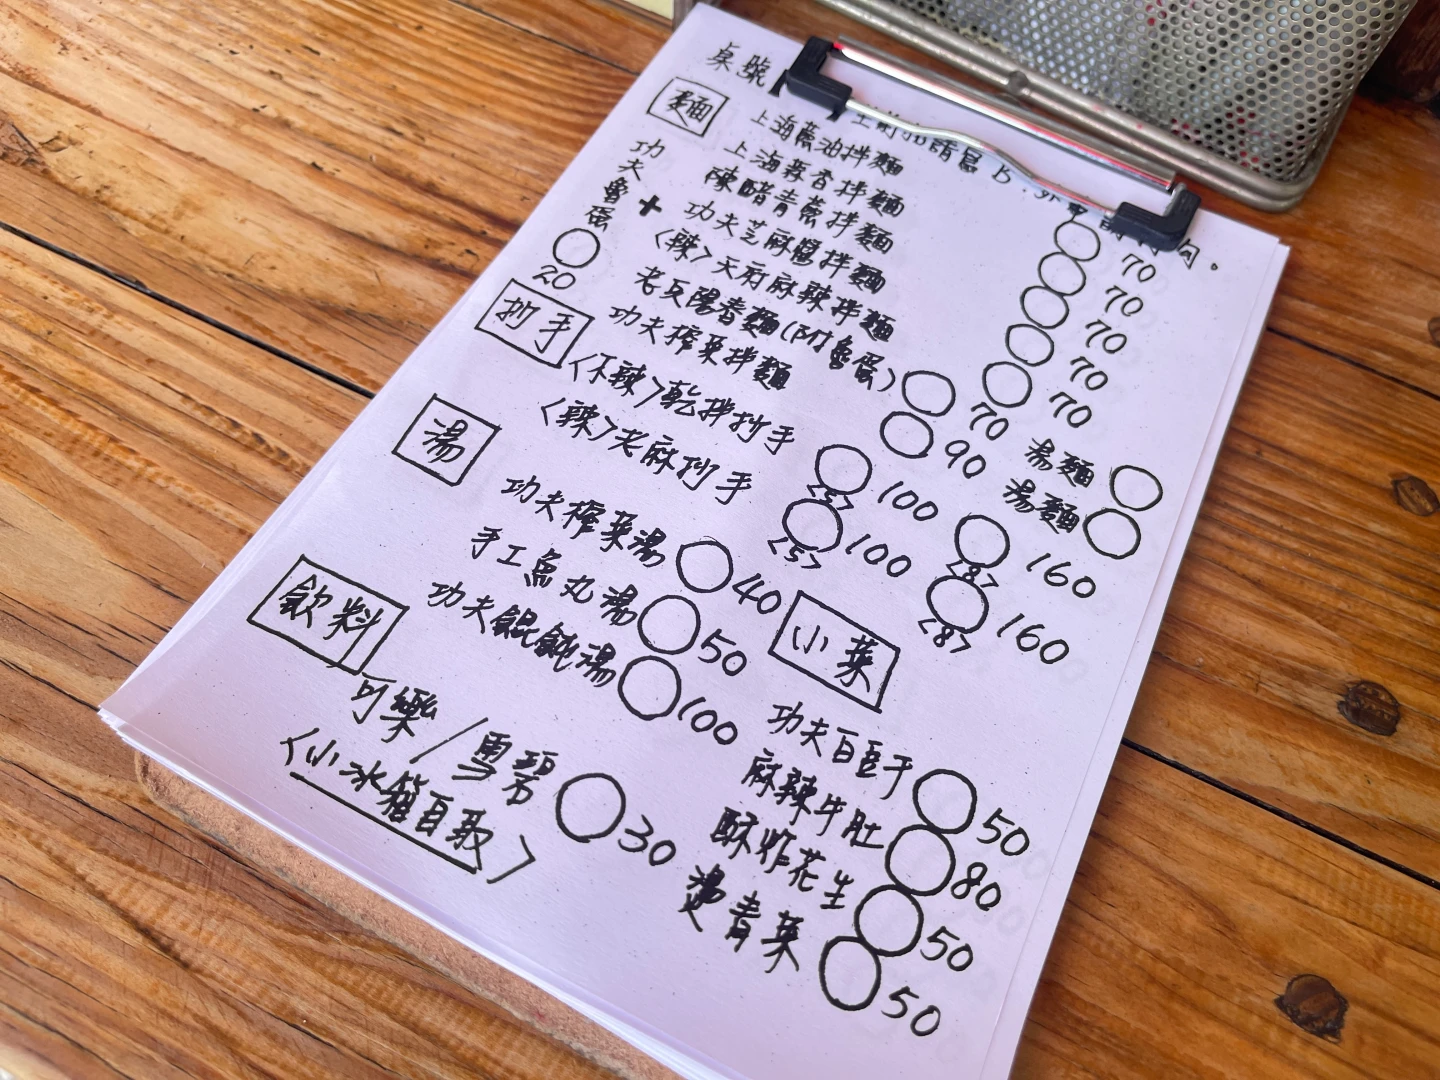 桌號
麵
上海蔥油拌麵 70
上海蒜香拌麵 70
陳醋青蔥拌麵 70
功夫芝麻醬拌麵 70
<辣>天府麻辣拌麵 70
老兵陽春麵(附魯蛋) 70 湯麵
功夫榨菜拌麵 90 湯麵
功夫魯蛋 +
20
抄手
<不辣>乾拌抄手 <5> 100 <8> 160
<辣>老麻抄手 <5> 100 <8> 160
湯
功夫榨菜湯 40
手工魚丸湯 50
功夫餛飩湯 100
飲料
可樂/雪碧 30
<小冰箱自取>
小菜
功夫百豆干 50
麻辣牛肚 80
酥炸花生 50
燙青菜 50